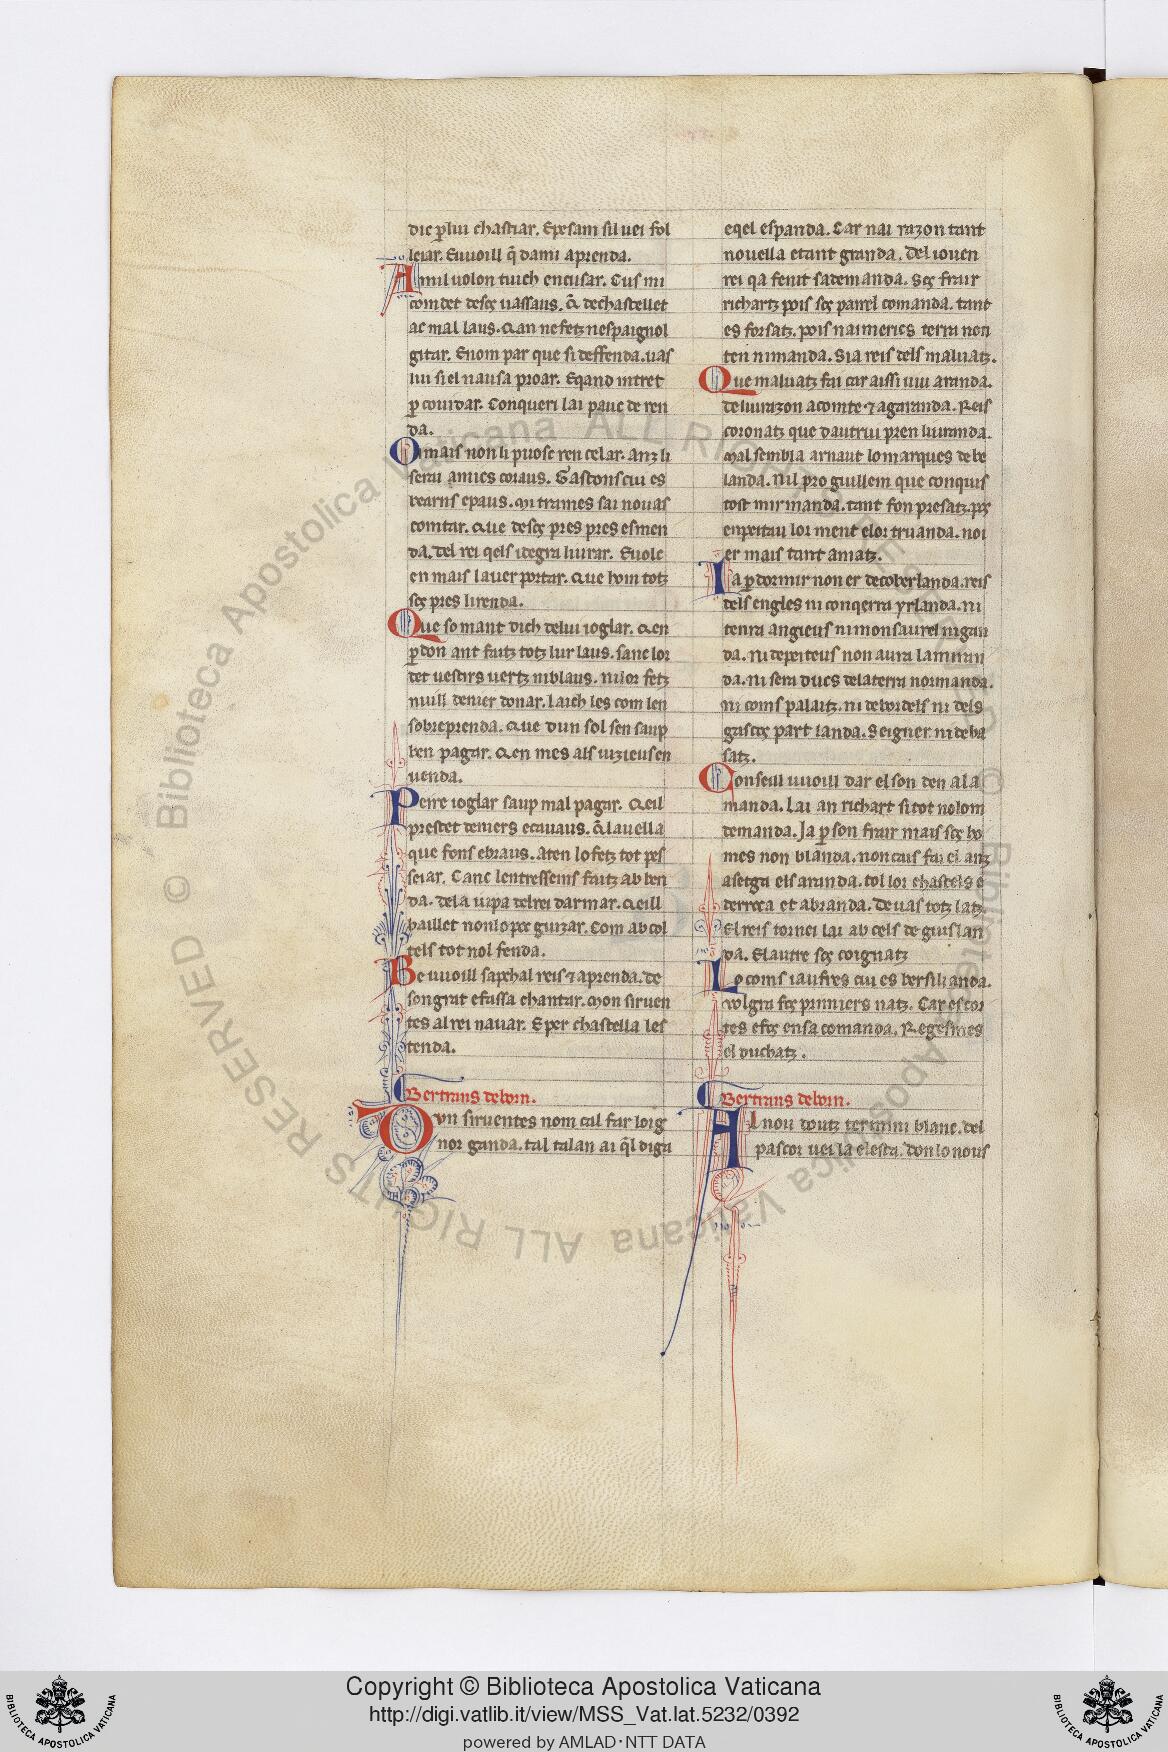 dic ꝑlui chastiar. Epesam sil uei fol
leiar. Euuoill q̃ dami aprenda.
Amil uolon tuich encusar. Cus mi
com det desez uassaus. & dechastellet
ac mal laus. & an ne fetz nespaignol
gitar. Enom par que si deffenda. uas
lui si el nausa proar. E qand intret
ꝑ courdar. Conqueri lai pauc de ren
da.
Oimais non li puosc ren celar. anz li
serai amics coraus. Gastons cui es
bearns epaus. mi trames sai nouas
comtar. Que desez pres pres esmen
da. del rei qels idegra liurar. E uolc
en mais lauer portar. Que hom totz
sez pres li renda.
Que so mant dich delui ioglar. & en
ꝑdon ant faitz totz lur laus. Sanc lor
det uestirs uertz niblaus. ni lor fetz
nuill denier donar. Laich les com len
sobreprenda. Que dun sol sen saup
ben pagar. & en mes als iuzieus en
uenda.
Peire ioglar saup mal pagar. & eil
prestet deniers e cauaus. & la uella
que fons ebraus. aten lo fetz tot pes
seiar. Canc lentresseins faitz ab ben
da. de la iupa del rei darmar. & eill
baillet non lo poc guizar. Com ab col
tels tot nol fenda.
Be uuoill sapchal reis & aprenda. de
son grat e fassa chantar. mon siruen
tes al rei nauar. E per chastella les
tenda.
Bertrans deborn.
Don siruentes nom cal far loig
nor ganda. tal talan ai q̃l diga
eqel espanda. Car nai razon tant
nouella etant granda. del iouen
rei qa fenit sa demanda. sez frair
richartz pois sez pairel comanda. tant
es forsatz. pois naimerics terra non
ten ni manda. Sia reis dels maluatz.
Que maluatz fai car aissi uiu aranda.
de liurazon acomte & agaranda. Reis
coronatz que dautrui pren liuranda.
Mal sembla arnaut lo marques de be
landa. Nil pro guillem que conquis
tost mirmanda. tant fon presatz. poz
enpeitau lor ment elor truanda. noi
er mais tant amatz.
Ia ꝑ dormir non er decoberlanda. reis
dels engles ni conqerra yrlanda. ni
tenra angieus ni monsaurel nigan
da. ni depeiteus non aura la miran
da. ni sera ducs dela terra normanda.
ni coms palaitz. ni de bordels ni dels
gascos part landa. Seigner. ni de ba
satz.
Conseill uuoill dar el son den a la
manda. Lai an richart si tot nolom
demanda. Ja ꝑ son frair mais sez ho
mes non blanda. non cais fai el anz
asetga els aranda. tol lor chastels e
derroca et abranda. deuas totz latz
El reis tornei lai ab cels de guislan
da. E lautre sez coignatz
Lo coms iaufres cui es bersilianda.
uolgra fos primiers natz. Car es cor
tes e fos ensa comanda. Regesmes
el duchatz.
Bertrans deborn.
Al nou doutz termini blanc. del
pascor uei la elesta. don lo nous
Copyright © Biblioteca Apostolica Vaticana
http://digi.vatlib.it/view/MSS_Vat.lat.5232/0392
powered by AMLAD·NTT DATA
BIBLIOTECA APOSTOLICA VATICANA
BIBLIOTECA APOSTOLICA VATICANA
© Biblioteca Apostolica Vaticana ALL RIGHTS RESERVED © Biblioteca Apostolica Vaticana ALL RIGHTS RESERVED